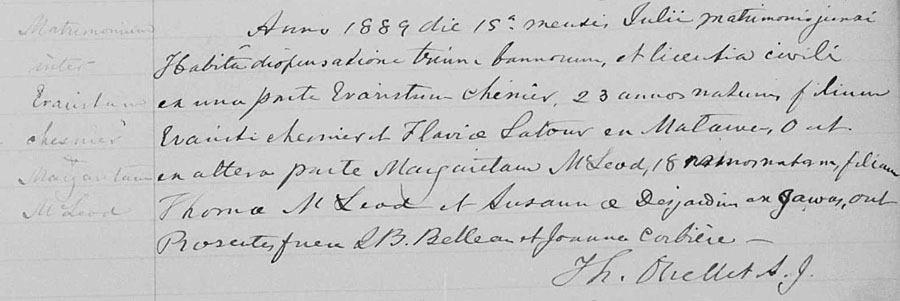 Matrimonium
inter
Evaristum
chesnier
Margaritam
McLeod
Anno 1889 die 15a mensis Julii matrimonio junxi
Habitâ dispensatione trium bannorum, et licentia civili
ex una parte Evaristum chenier, 23 annos natum, filium
Evaristi chesnier et Flaviæ Latour ex Matawa, Ont.
ex altera parte Margaritam McLeod, 18 annos natam, filiam
Thomæ McLeod et Susannæ Desjardin ex Ont
Testes fuere J.B. Belleau et Joanna Corbière —
Th. Ouellet S.J.